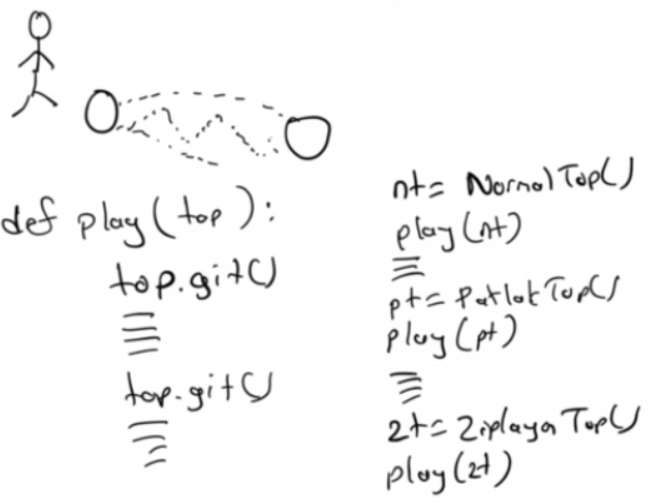 def play(top):
top.git()
top.git()
nt= NormalTop()
play(nt)
pt= PatlakTop()
play(pt)
zt= ZiplayanTop()
play(zt)